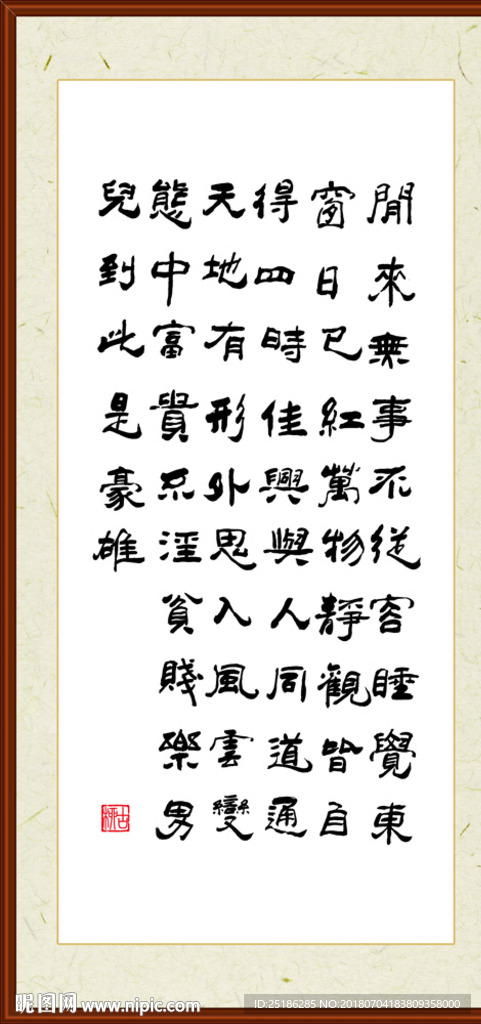 閒來無事不從容睡覺東
窗日已紅萬物靜觀皆自
得四時佳興與人同道通
天地有形外思入風雲變
態中富貴不淫貧賤樂男
兒到此是豪雄
昵图网 www.nipic.com
ID:25186285 NO:20180704183809358000